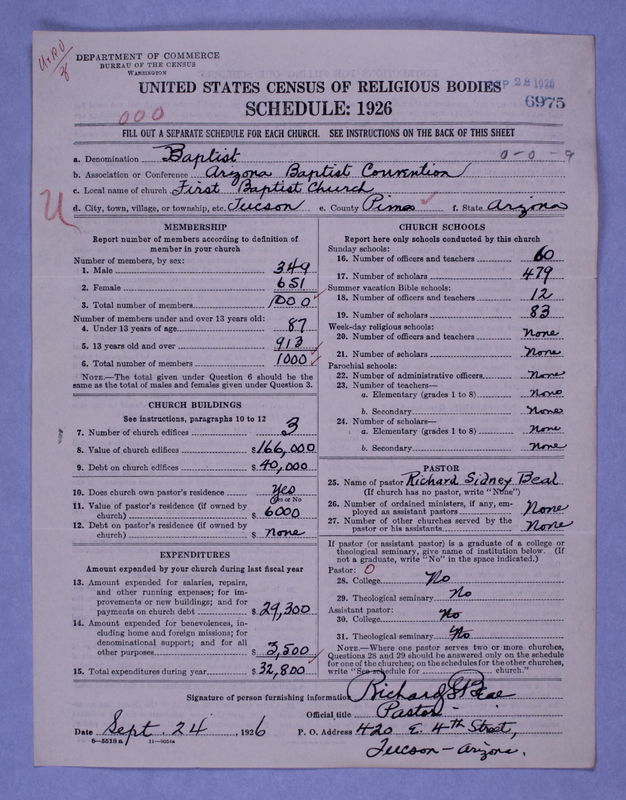 DEPARTMENT OF COMMERCE
BUREAU OF THE CENSUS
WASHINGTON
UNITED STATES CENSUS OF RELIGIOUS BODIES
SEP 28 1926
SCHEDULE: 1926
6975
000
FILL OUT A SEPARATE SCHEDULE FOR EACH CHURCH. SEE INSTRUCTIONS ON THE BACK OF THIS SHEET
a. Denomination Baptist 0-0-9
b. Association or Conference Arizona Baptist Convention
c. Local name of church First Baptist Church
d. City, town, village, or township, etc. Tucson e. County Pima f. State Arizona
MEMBERSHIP
Report number of members according to definition of
member in your church
Number of members, by sex:
1. Male 349
2. Female 651
3. Total number of members 1000
Number of members under and over 13 years old:
4. Under 13 years of age 87
5. 13 years old and over 913
6. Total number of members 1000
NOTE.—The total given under Question 6 should be the
same as the total of males and females given under Question 3.
CHURCH BUILDINGS
See instructions, paragraphs 10 to 12
7. Number of church edifices 3
8. Value of church edifices $166,000
9. Debt on church edifices $40,000
10. Does church own pastor's residence Yes
Yes or No
11. Value of pastor's residence (if owned by
church) $6000
12. Debt on pastor's residence (if owned by
church) $none
EXPENDITURES
Amount expended by your church during last fiscal year
13. Amount expended for salaries, repairs,
and other running expenses; for im-
provements or new buildings; and for
payments on church debt $29,300
14. Amount expended for benevolences, in-
cluding home and foreign missions; for
denominational support; and for all
other purposes $3,500
15. Total expenditures during year $32,800
CHURCH SCHOOLS
Report here only schools conducted by this church
Sunday schools:
16. Number of officers and teachers 60
17. Number of scholars 479
Summer vacation Bible schools:
18. Number of officers and teachers 12
19. Number of scholars 83
Week-day religious schools:
20. Number of officers and teachers None
21. Number of scholars None
Parochial schools:
22. Number of administrative officers None
23. Number of teachers—
a. Elementary (grades 1 to 8) None
b. Secondary None
24. Number of scholars—
a. Elementary (grades 1 to 8) None
b. Secondary None
PASTOR
25. Name of pastor Richard Sidney Beal
(If church has no pastor, write "None")
26. Number of ordained ministers, if any, em-
ployed as assistant pastors None
27. Number of other churches served by the
pastor or his assistants None
If pastor (or assistant pastor) is a graduate of a college or
theological seminary, give name of institution below. (If
not a graduate, write "No" in the space indicated.)
Pastor: 0
28. College No
29. Theological seminary No
Assistant pastor:
30. College No
31. Theological seminary No
NOTE.—Where one pastor serves two or more churches,
Questions 28 and 29 should be answered only on the schedule
for one of the churches; on the schedules for the other churches,
write "See schedule for church."
Signature of person furnishing information Richard S Beal
Official title Pastor-
Date Sept. 24, 1926 P. O. Address 420 E. 4th Street,
8-5518a 11-9054a Tucson-Arizona.